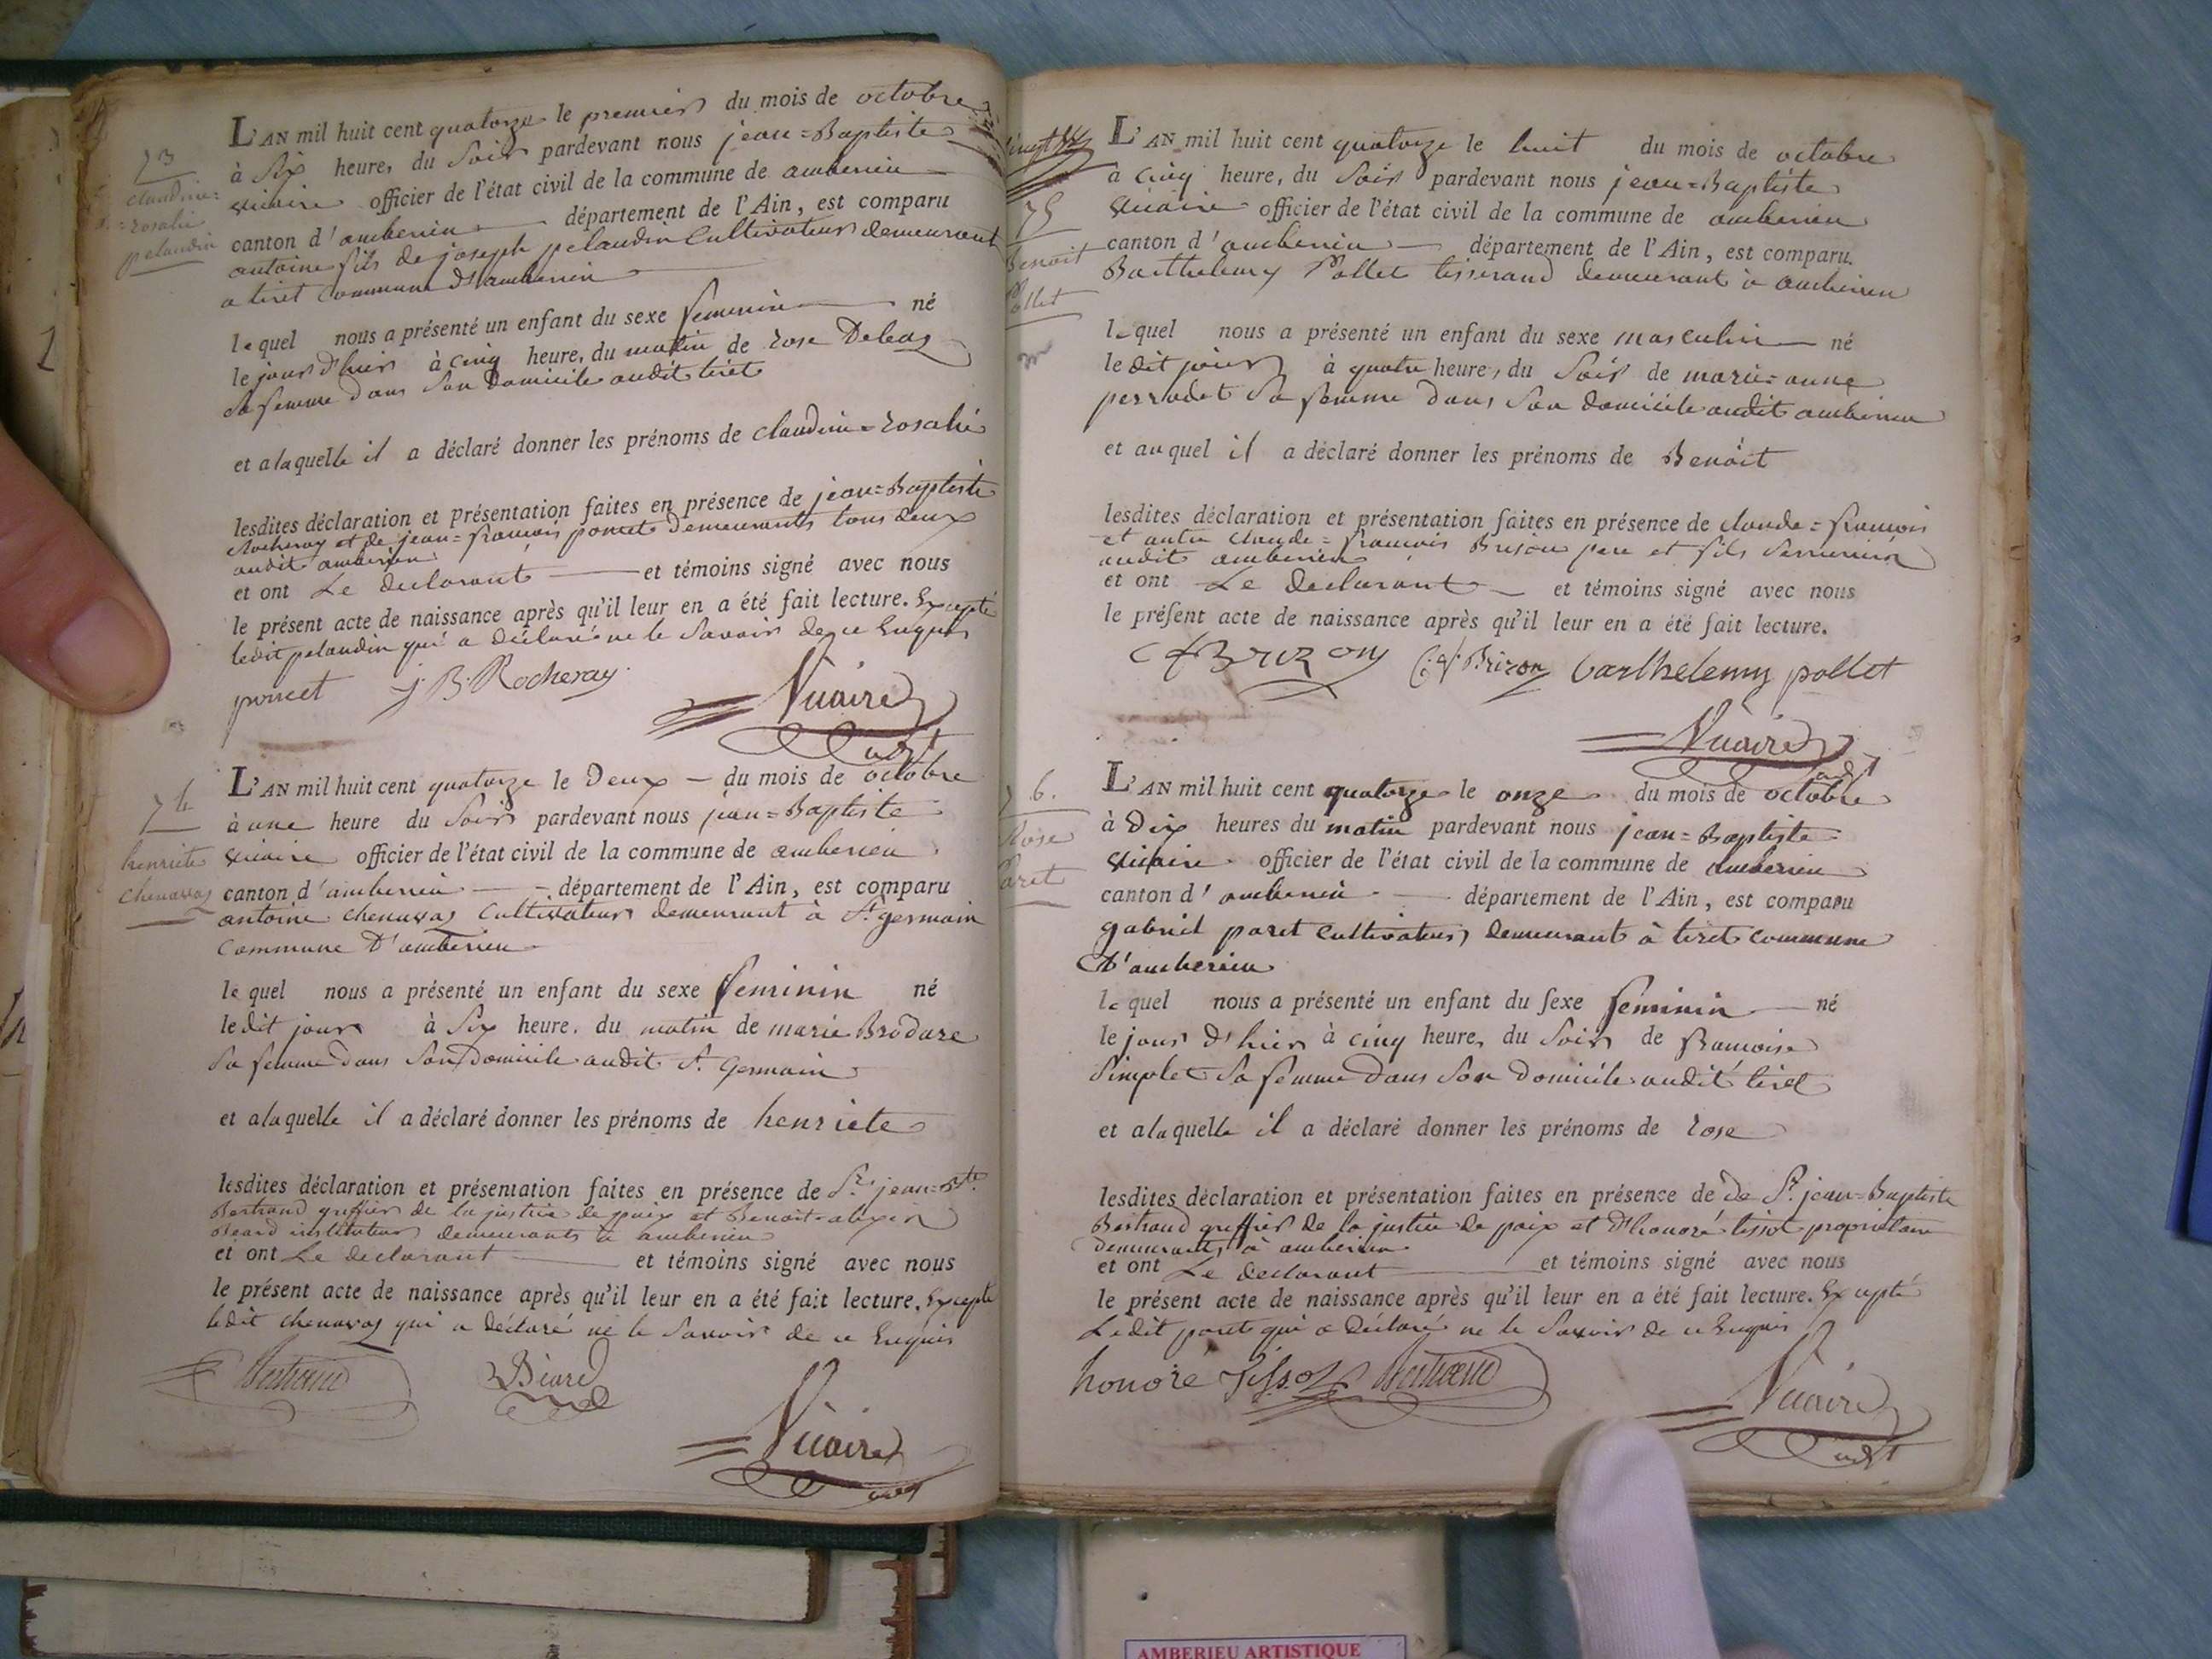 73
claudine=
rosalie
pelaudin
L'AN mil huit cent quatorze le premier du mois de octobre
à Six heure, du Soir pardevant nous jean=Baptiste
Vicaire officier de l'état civil de la commune de amberieu
canton d'amberieu département de l'Ain, est comparu
antoine fils de joseph pelaudin Cultivateur demeurant
a tiret Commune d'amberieu
lequel nous a présenté un enfant du sexe feminin né
le jour d'hier à cinq heure, du matin de rose
Sa femme dans Son Domicile audit tiret
et a laquelle il a déclaré donner les prénoms de claudine=rosalie
lesdites déclaration et présentation faites en présence de jean=Baptiste
Rocheray et de jean=françois poncet demeurants tous deux
audit amberieu
et ont Le declarant et témoins signé avec nous
le présent acte de naissance après qu'il leur en a été fait lecture. Excepté
ledit pelaudin qui a déclaré ne le Savoir de ce Enquis
poncet J. B. Rocheray
Vicaire
adjt
74
henriete
chenavas
L'AN mil huit cent quatorze le Deux du mois de octobre
à une heure du Soir pardevant nous jean=Baptiste
Vicaire officier de l'état civil de la commune de amberieu
canton d'amberieu département de l'Ain, est comparu
antoine chenavas Cultivateur demeurant à St germain
Commune d'amberieu
lequel nous a présenté un enfant du sexe feminin né
ledit jour à Six heure, du matin de marie Brodare
Sa femme dans Son Domicile audit St Germain
et a laquelle il a déclaré donner les prénoms de henriete
lesdites déclaration et présentation faites en présence de Sr jean=Bte
Bertrand greffier de la justice de paix et Benoit=alexis
Béard instituteur demeurants à amberieu
et ont Le declarant et témoins signé avec nous
le présent acte de naissance après qu'il leur en a été fait lecture. Excepté
ledit chenavas qui a déclaré ne le Savoir de ce Enquis
Bertrand Béard
Vicaire
adjt
75
Benoit
Pollet
L'AN mil huit cent quatorze le huit du mois de octobre
à cinq heure, du Soir pardevant nous jean=Baptiste
Vicaire officier de l'état civil de la commune de amberieu
canton d'amberieu département de l'Ain, est comparu
Barthelemy Pollet tisserand demeurant à amberieu
lequel nous a présenté un enfant du sexe masculin né
ledit jour à quatre heure, du Soir de marie=anne
perrodet Sa femme dans Son domicile audit amberieu
et auquel il a déclaré donner les prénoms de Benoit
lesdites déclaration et présentation faites en présence de claude=françois
et autre claude=françois Brison pere et fils
audit amberieu
et ont Le declarant et témoins signé avec nous
le présent acte de naissance après qu'il leur en a été fait lecture.
Brizon C. f. Brizon barthelemy pollet
Vicaire
adjt
76.
Rose
Paret
L'AN mil huit cent quatorze le onze du mois de octobre
à Dix heures du matin pardevant nous jean=Baptiste
Vicaire officier de l'état civil de la commune de amberieu
canton d'amberieu département de l'Ain, est comparu
gabriel paret cultivateur, demeurant à tiret commune
d'amberieu
lequel nous a présenté un enfant du sexe feminin né
le jour d'hier à cinq heure, du Soir de françoise
Simplet Sa femme dans Son domicile audit tiret
et a laquelle il a déclaré donner les prénoms de rose
lesdites déclaration et présentation faites en présence de de Sr jean=Baptiste
Bertrand greffier de la justice de paix et d'honoré tissot propriétaire
demeurants à amberieu
et ont Le declarant et témoins signé avec nous
le présent acte de naissance après qu'il leur en a été fait lecture. Excepté
Ledit paret qui a déclaré ne le Savoir de ce Enquis
honoré Tissot Bertrand
Vicaire
adjt
AMBERIEU ARTISTIQUE